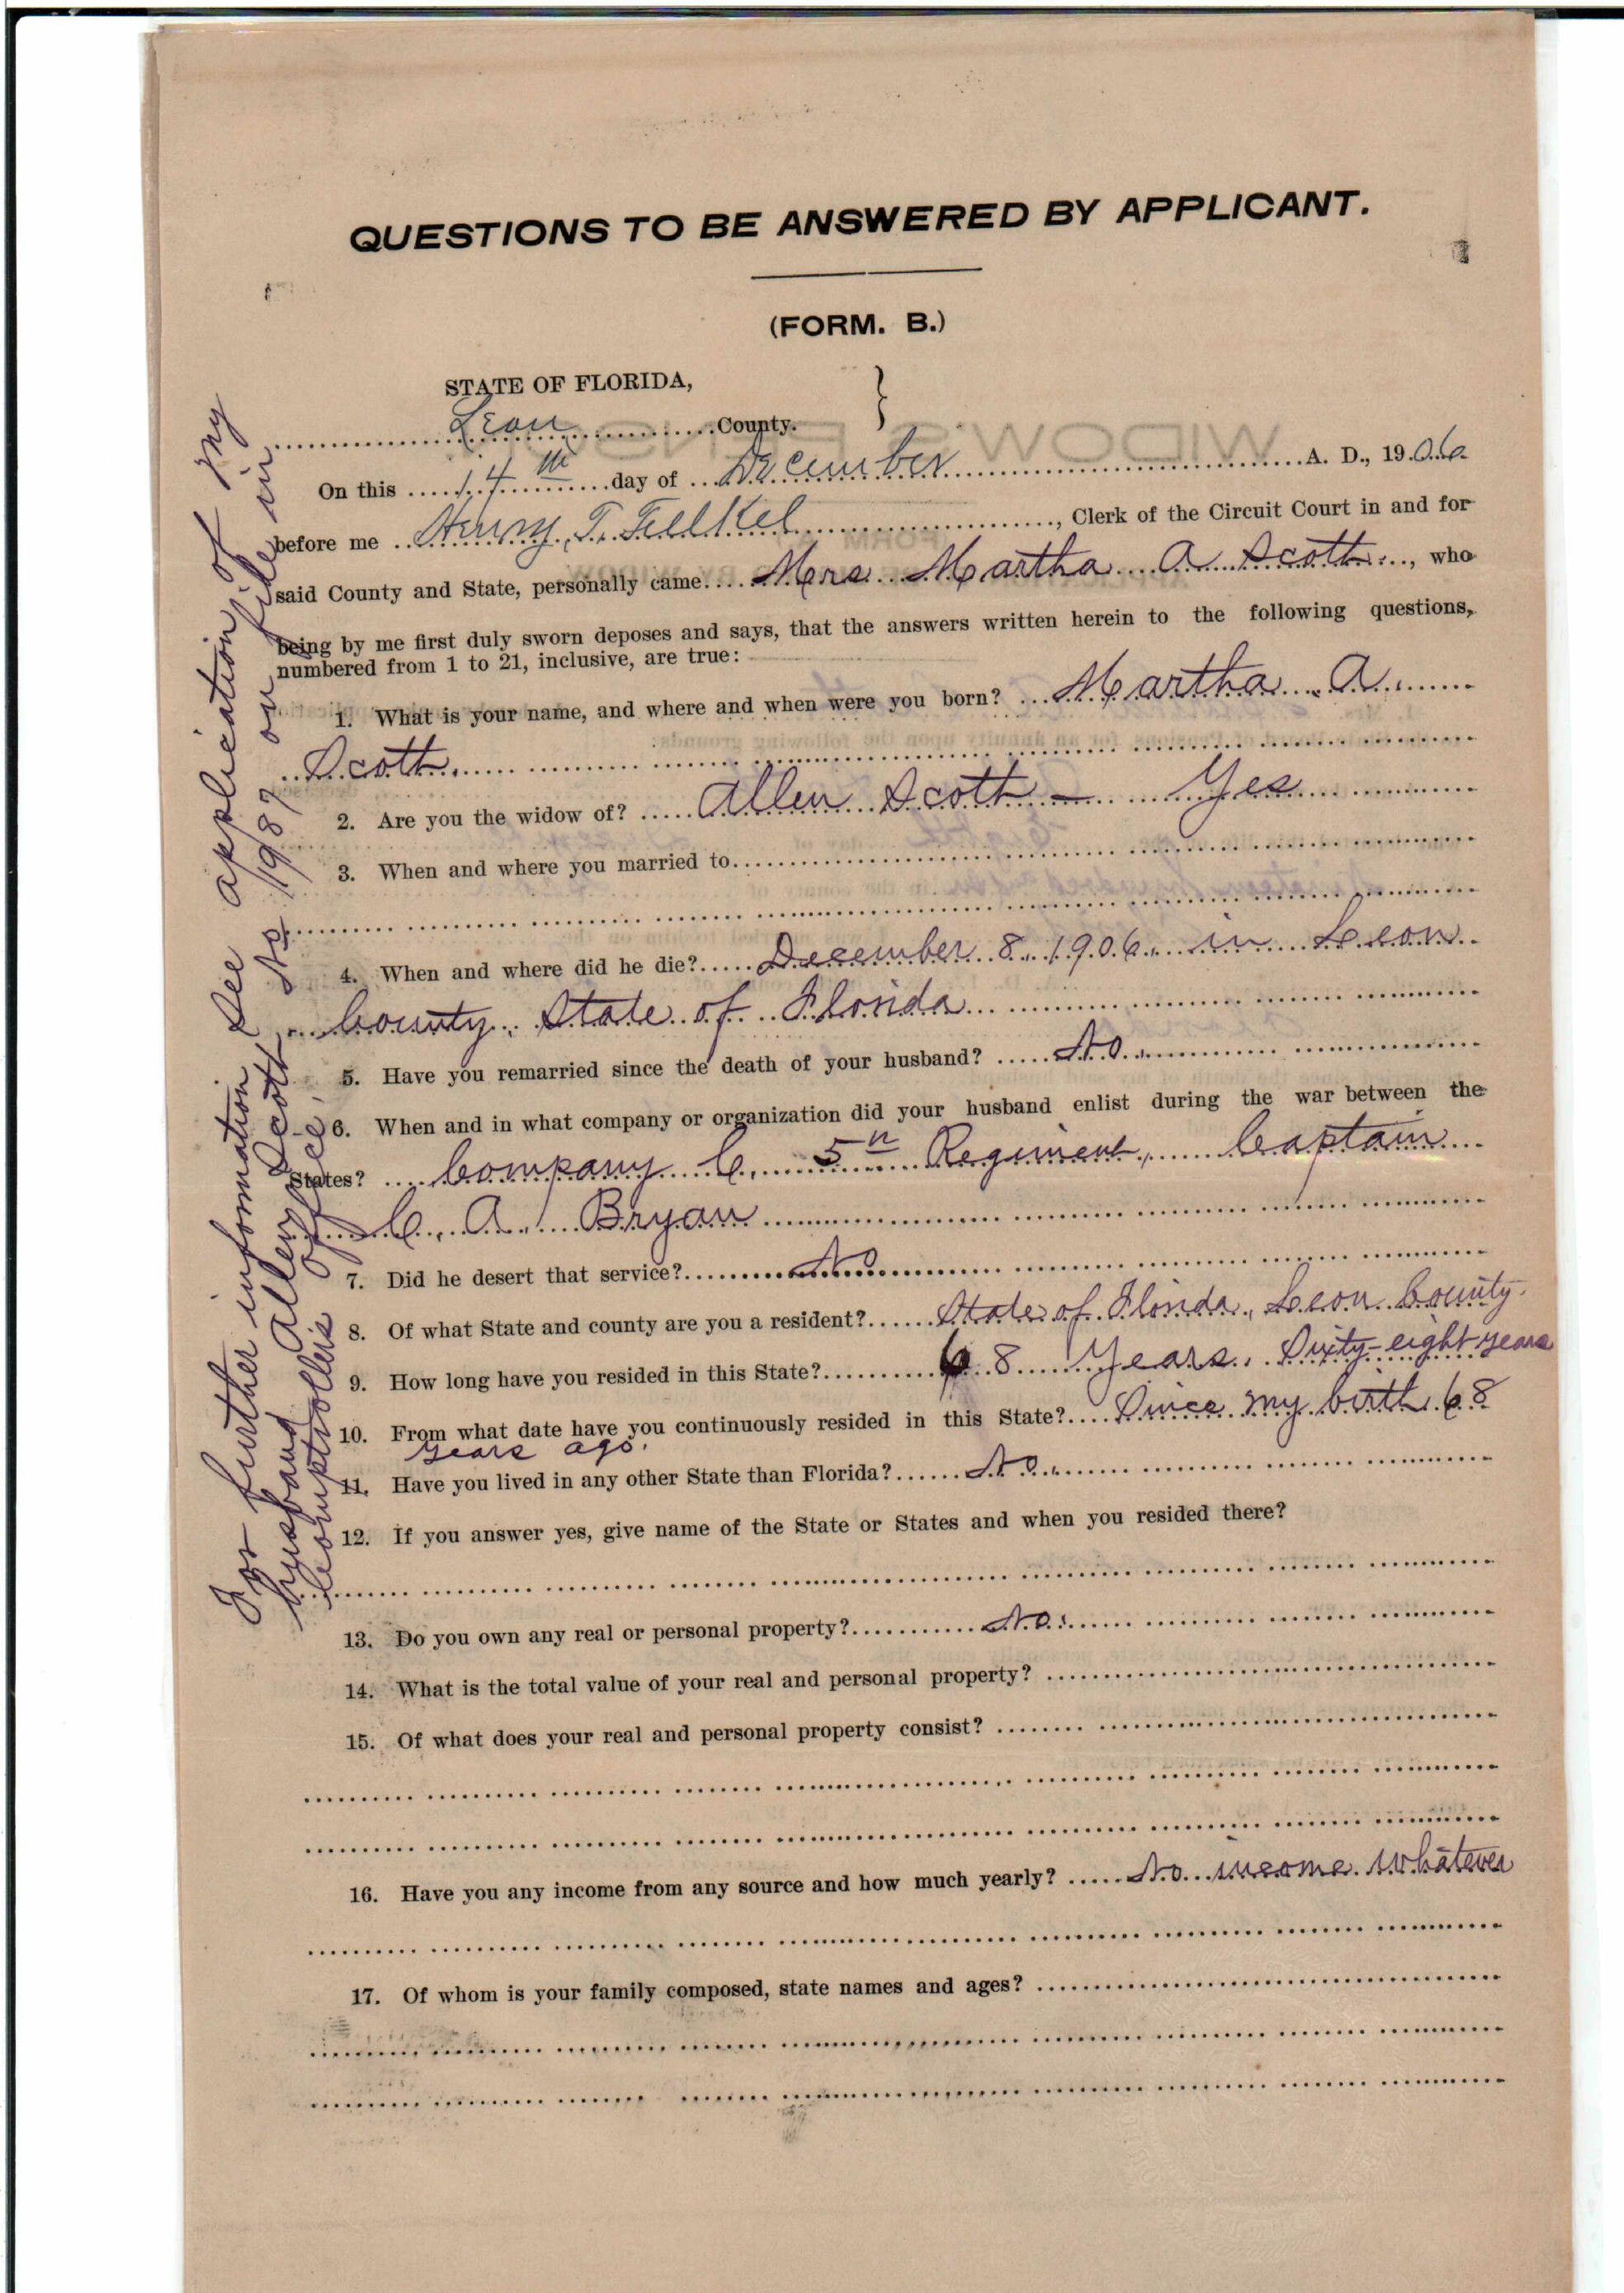 QUESTIONS TO BE ANSWERED BY APPLICANT.
(FORM. B.)
STATE OF FLORIDA,
Leon County.
On this 14th day of December A. D., 1906
before me Henry T. Felkel, Clerk of the Circuit Court in and for
said County and State, personally came Mrs Martha A Scott, who
being by me first duly sworn deposes and says, that the answers written herein to the following questions,
numbered from 1 to 21, inclusive, are true:
1. What is your name, and where and when were you born? Martha A.
Scott.
2. Are you the widow of? Allen Scott — Yes
3. When and where you married to
4. When and where did he die? December 8, 1906, in Leon
County, State of Florida
5. Have you remarried since the death of your husband? No.
6. When and in what company or organization did your husband enlist during the war between the
States? Company C, 5n Regiment, Captain
C. A. Bryan
7. Did he desert that service? No
8. Of what State and county are you a resident? State of Florida, Leon County.
9. How long have you resided in this State? 68 Years. Sixty-eight years
10. From what date have you continuously resided in this State? Since my birth 68
years ago.
11. Have you lived in any other State than Florida? No.
12. If you answer yes, give name of the State or States and when you resided there?
13. Do you own any real or personal property? No.
14. What is the total value of your real and personal property?
15. Of what does your real and personal property consist?
16. Have you any income from any source and how much yearly? No income whatever
17. Of whom is your family composed, state names and ages?
For further information see application of my
husband Allen Scott No 1987 on file in
Comptroller's office.